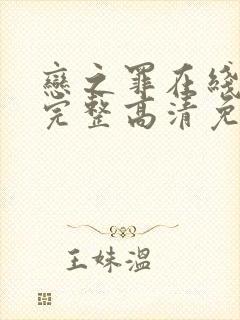 戀之罪在綫
完整高清免
王妹溫